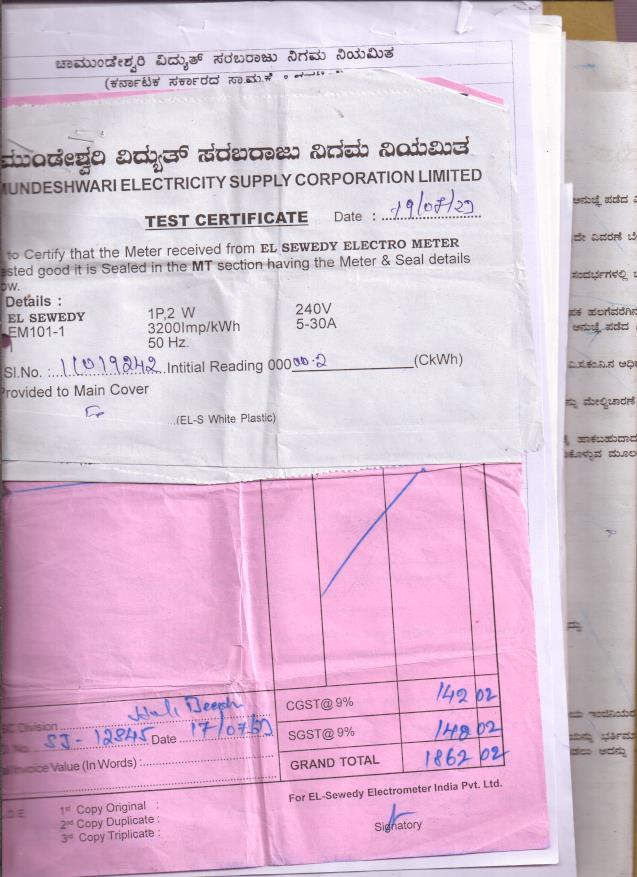 ಚಾಮುಂಡೇಶ್ವರಿ ವಿದ್ಯುತ್ ಸರಬರಾಜು ನಿಗಮ ನಿಯಮಿತ
(ಕರ್ನಾಟಕ ಸರ್ಕಾರದ
ಮುಂಡೇಶ್ವರಿ ವಿದ್ಯುತ್ ಸರಬರಾಜು ನಿಗಮ ನಿಯಮಿತ
MUNDESHWARI ELECTRICITY SUPPLY CORPORATION LIMITED
TEST CERTIFICATE Date : 19/07/23
to Certify that the Meter received from EL SEWEDY ELECTRO METER
ested good it is Sealed in the MT section having the Meter & Seal details
ow.
Details :
EL SEWEDY 1P,2 W 240V
EM101-1 3200Imp/kWh 5-30A
50 Hz.
Sl.No. : 11019242 Intitial Reading 000 00.2 (CkWh)
Provided to Main Cover
...(EL-S White Plastic)
CGST@ 9% 142 02
SC Division
SGST@ 9% 142 02
No. SJ-12845 Date 17/07/23
GRAND TOTAL 1862 02
Invoice Value (In Words) :
For EL-Sewedy Electrometer India Pvt. Ltd.
1st Copy Original :
2nd Copy Duplicate :
3rd Copy Triplicate :
Signatory
ಅನುಜ್ಞೆ ಪಡೆದ
ದೇ ವಿವರಣೆ
ಸಂದರ್ಭಗಳಲ್ಲಿ
ಅನುಜ್ಞೆ ಪಡೆದ
ಮೇಲ್ವಿಚಾರಣೆ
ಹಾಕಬಹುದಾದ
ಕೊಳ್ಳುವ ಮೂಲ